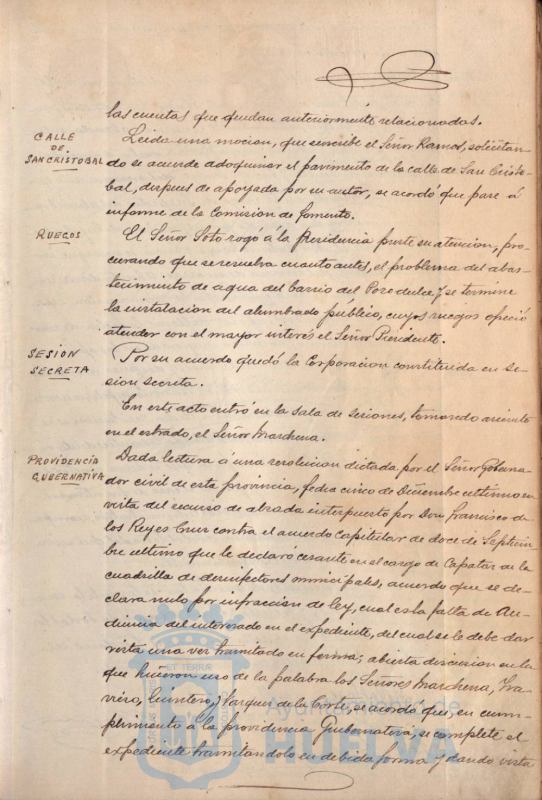 las cuentas que quedan anteriormente relacionadas.
CALLE
DE
SAN CRISTOBAL
Leida una mocion, que suscribe el Señor Ramos, solicitan-
do se acuerde adoquinar el pavimento de la calle de San Cristo-
bal, despues de apoyada por su autor, se acordó que pase á
informe de la Comision de Fomento.
RUEGOS
El Señor Soto rogó á la Presidencia preste su atencion, pro-
curando que se resuelva cuanto antes, el problema del abas-
tecimiento de agua del barrio del Pozo dulce, y se termine
la instalacion del alumbrado público, cuyos ruegos ofreció
atender con el mayor interés el Señor Presidente.
SESION
SECRETA
Por su acuerdo quedó la Corporacion constituida en se-
sion secreta.
En este acto entró en la sala de sesiones, tomando asiento
en el estrado, el Señor Marchena.
PROVIDENCIA
GUBERNATIVA
Dada lectura á una resolucion dictada por el Señor Goberna-
dor civil de esta provincia, fecha cinco de Diciembre ultimo en
vista del recurso de alzada interpuesto por Don Francisco de
los Reyes Cruz contra el acuerdo capitular de doce de Septiem-
bre ultimo que le declaró cesante en el cargo de Capataz de la
cuadrilla de desinfectores municipales, acuerdo que se de-
clara nulo por infraccion de ley, cual es la falta de Au-
diencia del interesado en el expediente, del cual se le debe dar
vista una vez tramitado en forma; abierta discusion en la
que hicieron uso de la palabra los Señores Marchena, Tra-
viéso, Quintero, y Vazquez de la Corte, se acordó que, en cum-
plimiento á la providencia Gubernativa, se complete el
expediente tramitandolo en debida forma y dando vista
Ayuntamiento de
HUELVA